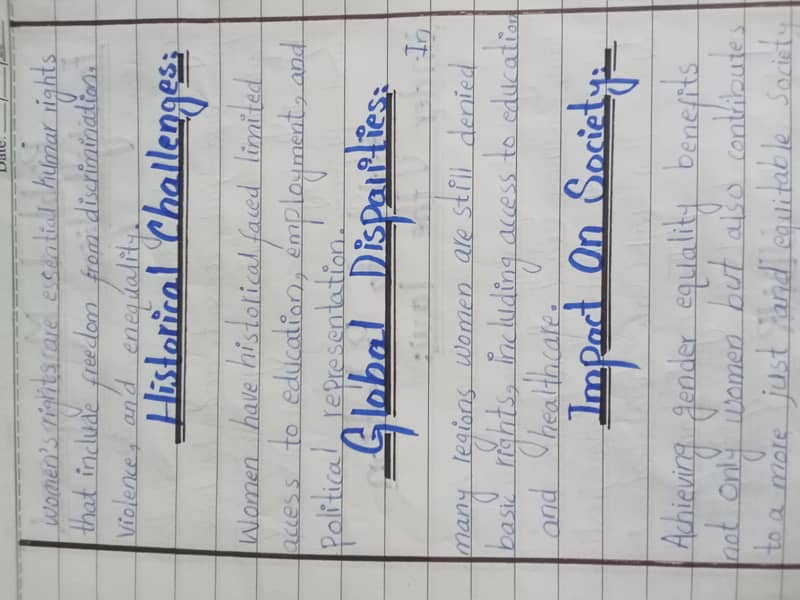 Date:
women's rights are essential humar rights
that include freedom from discrimination,
Violence, and enequality.
Historical Challenges:
Women have historical faced limited
access to education, employment, and
Political representation.
Global Disparities:
In
many regions women are still denied
basic rights, including access to education
and healthcare.
Impact On Society:
Achieving gender equality benefits
not only women but also contributes
to a more just and equitable society